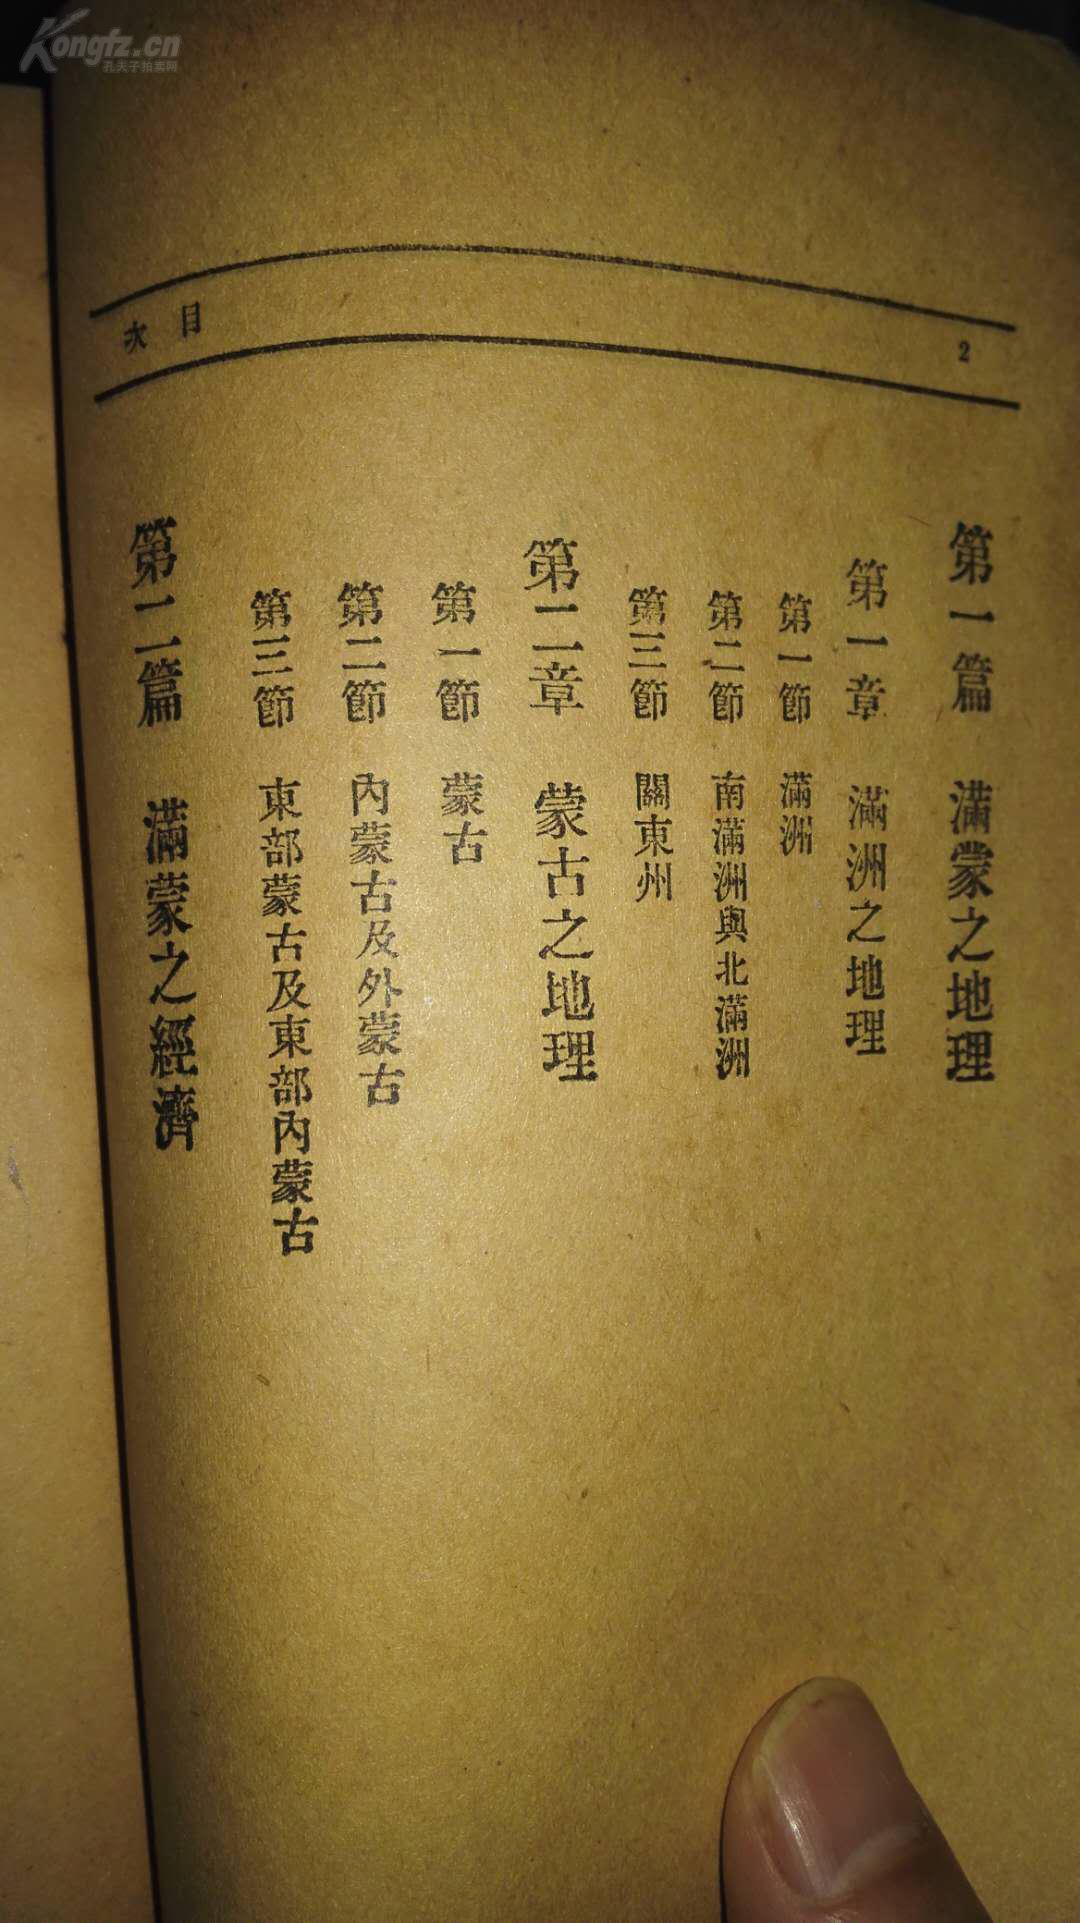 Kongfz.cn
孔夫子拍卖网
目次
2
第一篇 滿蒙之地理
第一章 滿洲之地理
第一節 滿洲
第二節 南滿洲與北滿洲
第三節 關東州
第二章 蒙古之地理
第一節 蒙古
第二節 內蒙古及外蒙古
第三節 東部蒙古及東部內蒙古
第二篇 滿蒙之經濟